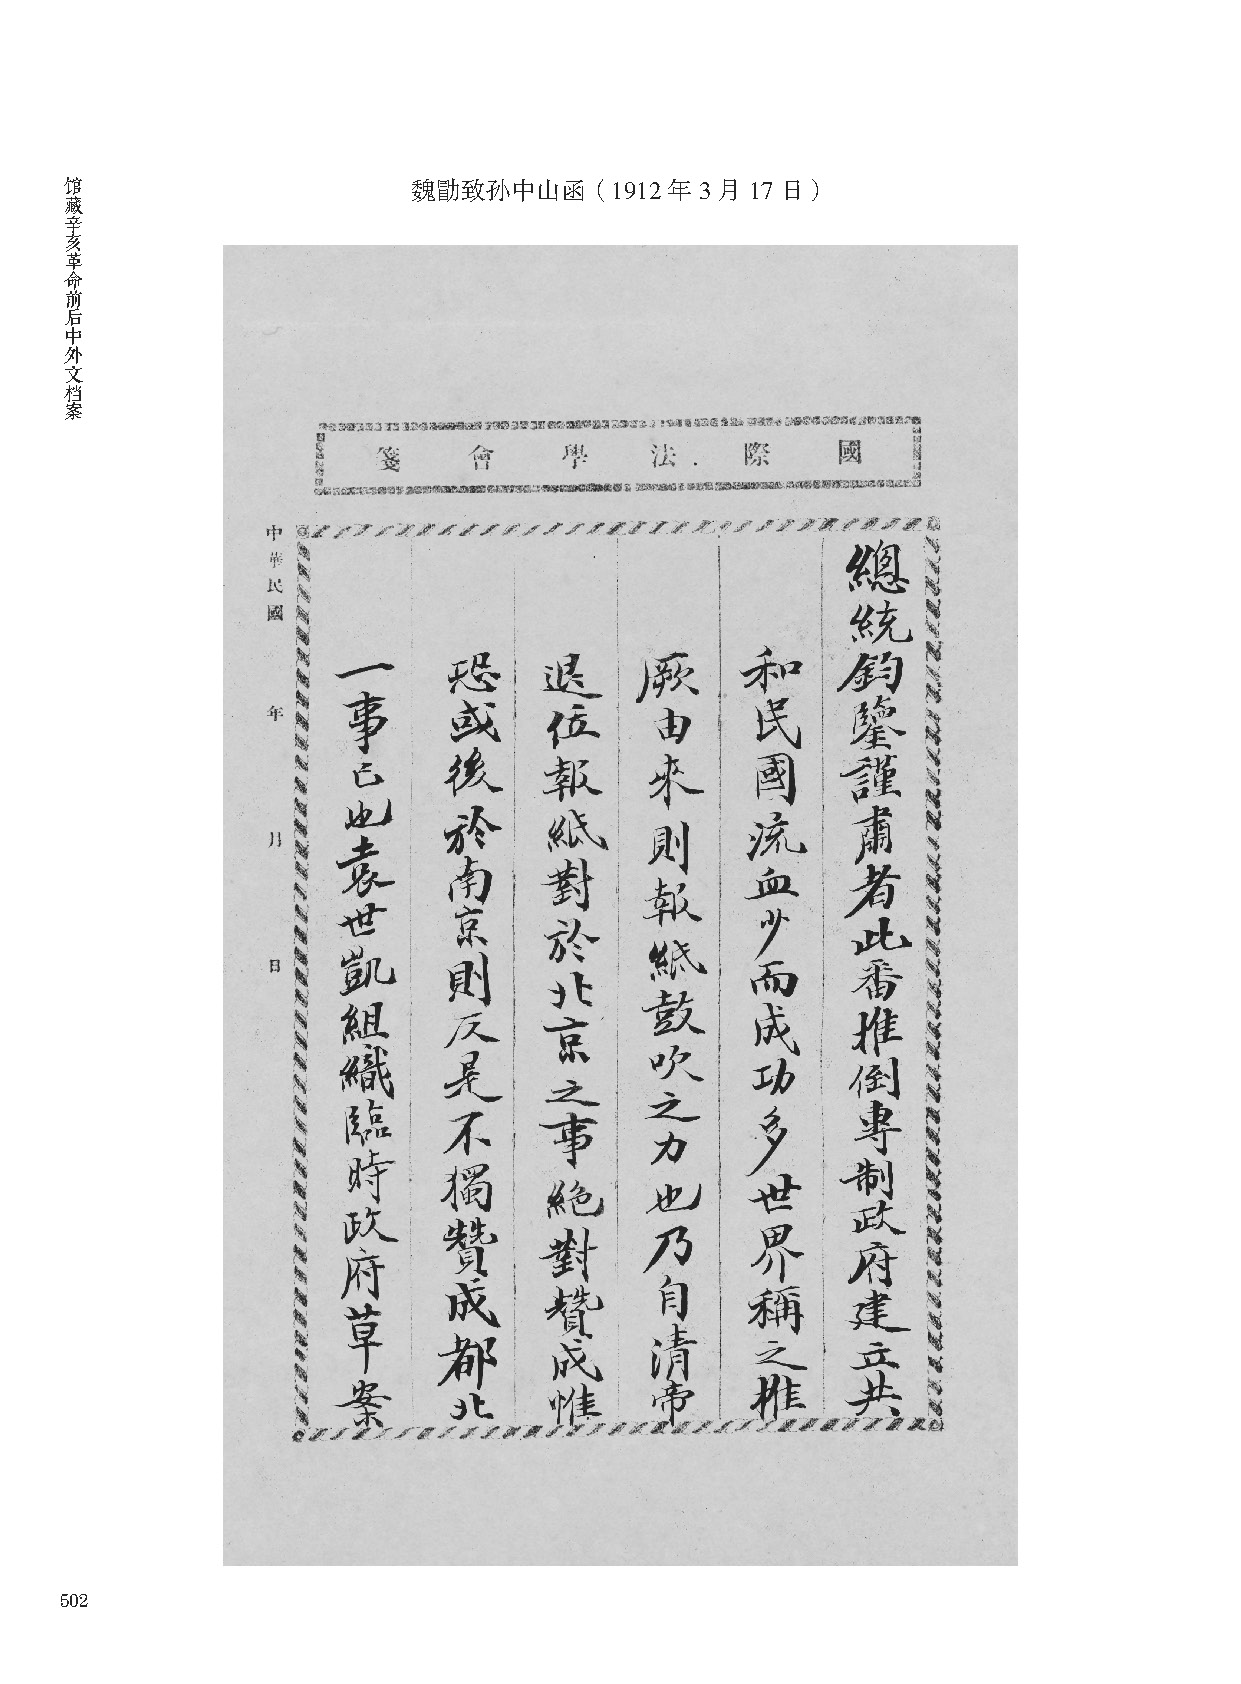 馆藏辛亥革命前后中外文档案
魏勖致孙中山函（1912年3月17日）
國際法學會箋
總統鈞鑒謹肅者此番推倒專制政府建立共
和民國流血少而成功多世界稱之推
厥由來則報紙鼓吹之力也乃自清帝
退位報紙對於北京之事絶對贊成惟
恐或後於南京則反是不獨贊成都北
一事已也袁世凱組織臨時政府草案
中華民國 年 月 日
502